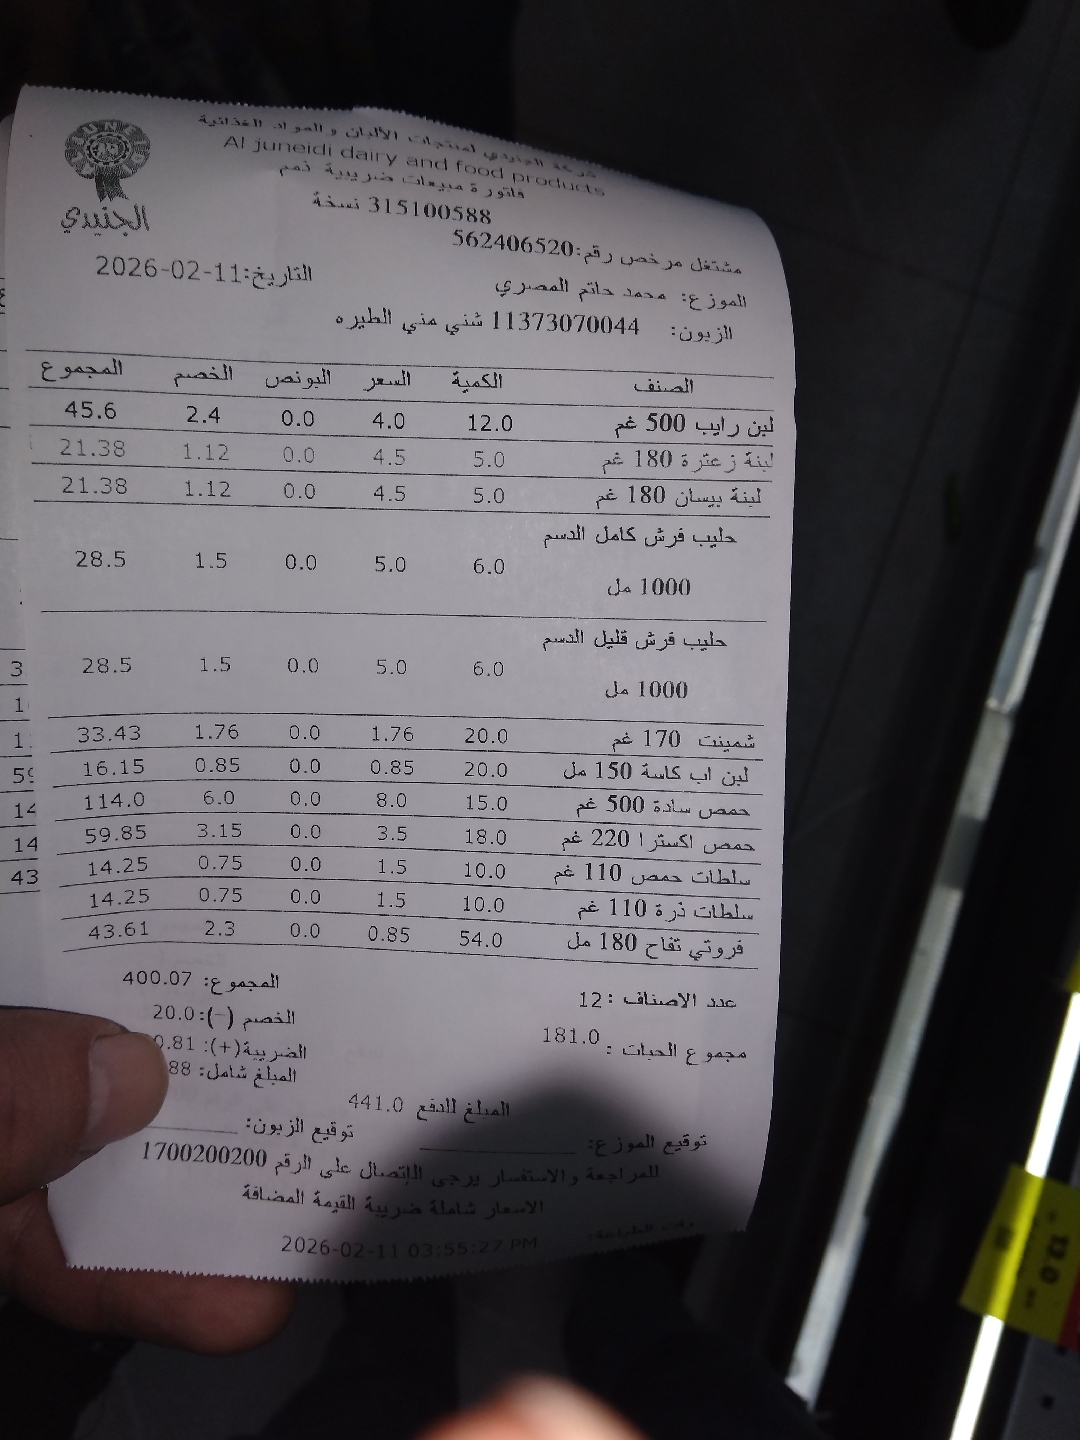 شركة الجنيدي لمنتجات الألبان والمواد الغذائية
Al juneidi dairy and food products
فاتورة مبيعات ضريبية ذمم
315100588 نسخة
مشتغل مرخص رقم:562406520
الجنيدي
التاريخ:2026-02-11
الموزع: محمد حاتم المصري
الزبون: 11373070044 شني مني الطيره
الصنف الكمية السعر البونص الخصم المجموع
لبن رايب 500 غم 12.0 4.0 0.0 2.4 45.6
لبنة زعترة 180 غم 5.0 4.5 0.0 1.12 21.38
لبنة بيسان 180 غم 5.0 4.5 0.0 1.12 21.38
حليب فرش كامل الدسم
1000 مل 6.0 5.0 0.0 1.5 28.5
حليب فرش قليل الدسم
1000 مل 6.0 5.0 0.0 1.5 28.5
شمينت 170 غم 20.0 1.76 0.0 1.76 33.43
لبن اب كاسة 150 مل 20.0 0.85 0.0 0.85 16.15
حمص سادة 500 غم 15.0 8.0 0.0 6.0 114.0
حمص اكسترا 220 غم 18.0 3.5 0.0 3.15 59.85
سلطات حمص 110 غم 10.0 1.5 0.0 0.75 14.25
سلطات ذرة 110 غم 10.0 1.5 0.0 0.75 14.25
فروتي تفاح 180 مل 54.0 0.85 0.0 2.3 43.61
عدد الاصناف : 12 المجموع: 400.07
مجموع الحبات : 181.0 الخصم (-):20.0
الضريبة(+): 0.81
المبلغ شامل: 88
المبلغ للدفع 441.0
توقيع الموزع: توقيع الزبون:
للمراجعة والاستفسار يرجى الإتصال على الرقم 1700200200
الاسعار شاملة ضريبة القيمة المضافة
وقت الطباعة: 2026-02-11 03:55:27 PM
3
1
1
59
14
14
43
13.0